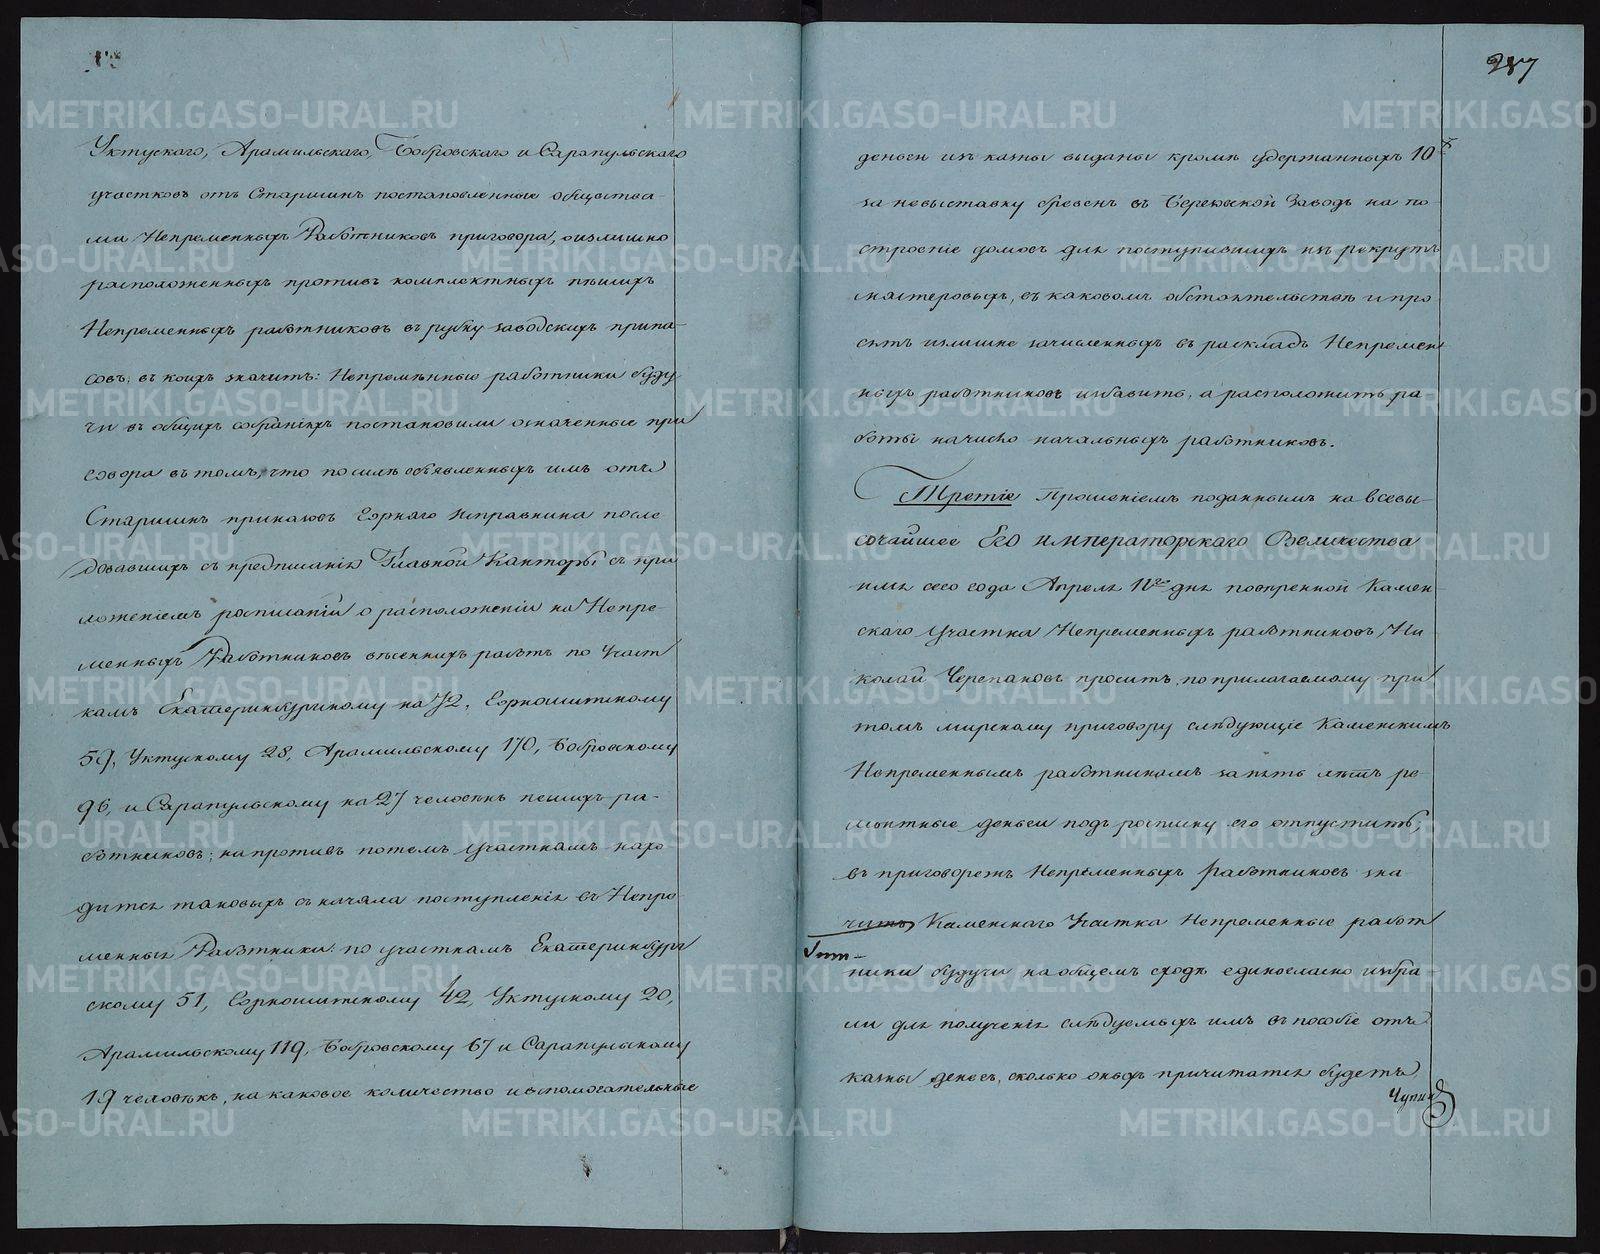 Уктускаго, Арамильскаго, Бобровскаго и Сарапульскаго
участковъ отъ Старшинъ постановленные общества-
ми Непременныхъ Работниковъ приговора, о излишно
расположенныхъ противъ комплектныхъ пешихъ
Непременныхъ работниковъ въ рубку заводскихъ припа-
совъ; въ коихъ значитъ: Непремѣнные работники буду
чи въ общихъ собранiяхъ постановили означенные при
говора въ томъ, что по силѣ объявленныхъ имъ отъ
Старшинъ приказовъ Горнаго Исправника после
довавшихъ съ предписанiя Главной Канторы съ при
ложенiемъ росписанiй о расположенiи на Непре-
менныхъ Работниковъ весеннихъ работъ по Участ
камъ Екатеринбургскому на 72, Горношитскому
59, Уктускому 28, Арамильскому 170, Бобровскому
96, и Сарапульскому на 27 человѣкъ пешихъ ра-
ботниковъ; на противъ по темъ Участкамъ нахо
дится таковыхъ съ начала поступленiя въ Непре
менныя Работники: по участкамъ Екатеринбург
скому 51, Горношитскому 42, Уктускому 20,
Арамильскому 119, Бобровскому 67 и Сарапульскому
19 человѣкъ, на каковое количество и вспомогательные
287
деньги изъ казны выданы кромѣ удержанныхъ 10
за невыставку бревенъ въ Березовской Заводъ на по
строенiе домовъ для поступившихъ изъ рекрутъ
мастеровыхъ, въ каковомъ обстоятельствѣ и про
сятъ излишне зачисленныхъ въ раскладъ Непремен
ныхъ работниковъ избавить, а расположить ра
боты на число начальныхъ работниковъ.
Третiе Прошенiемъ поданнымъ на Всевы-
сочайшее Его Императорскаго Величества
имя сего года Апреля 11го дня повѣренной Камен-
скаго Участка Непременныхъ работниковъ, Ни
колай Черепановъ проситъ, по прилагаемому при
томъ мирскому приговору слѣдующiе Каменскимъ
Непременнымъ работникамъ за пять летъ ре
монтные деньги подъ росписку его отпустить,
въ приговоретъ Непременныхъ работниковъ зна
читъ Каменскаго Участка Непременные работ
ники будучи на общемъ сходѣ единогласно избра
ли для полученiя слѣдуемыхъ имъ въ пособiе отъ
казны денегъ, сколько оныхъ причитатся будетъ
METRIKI.GASO-URAL.RU